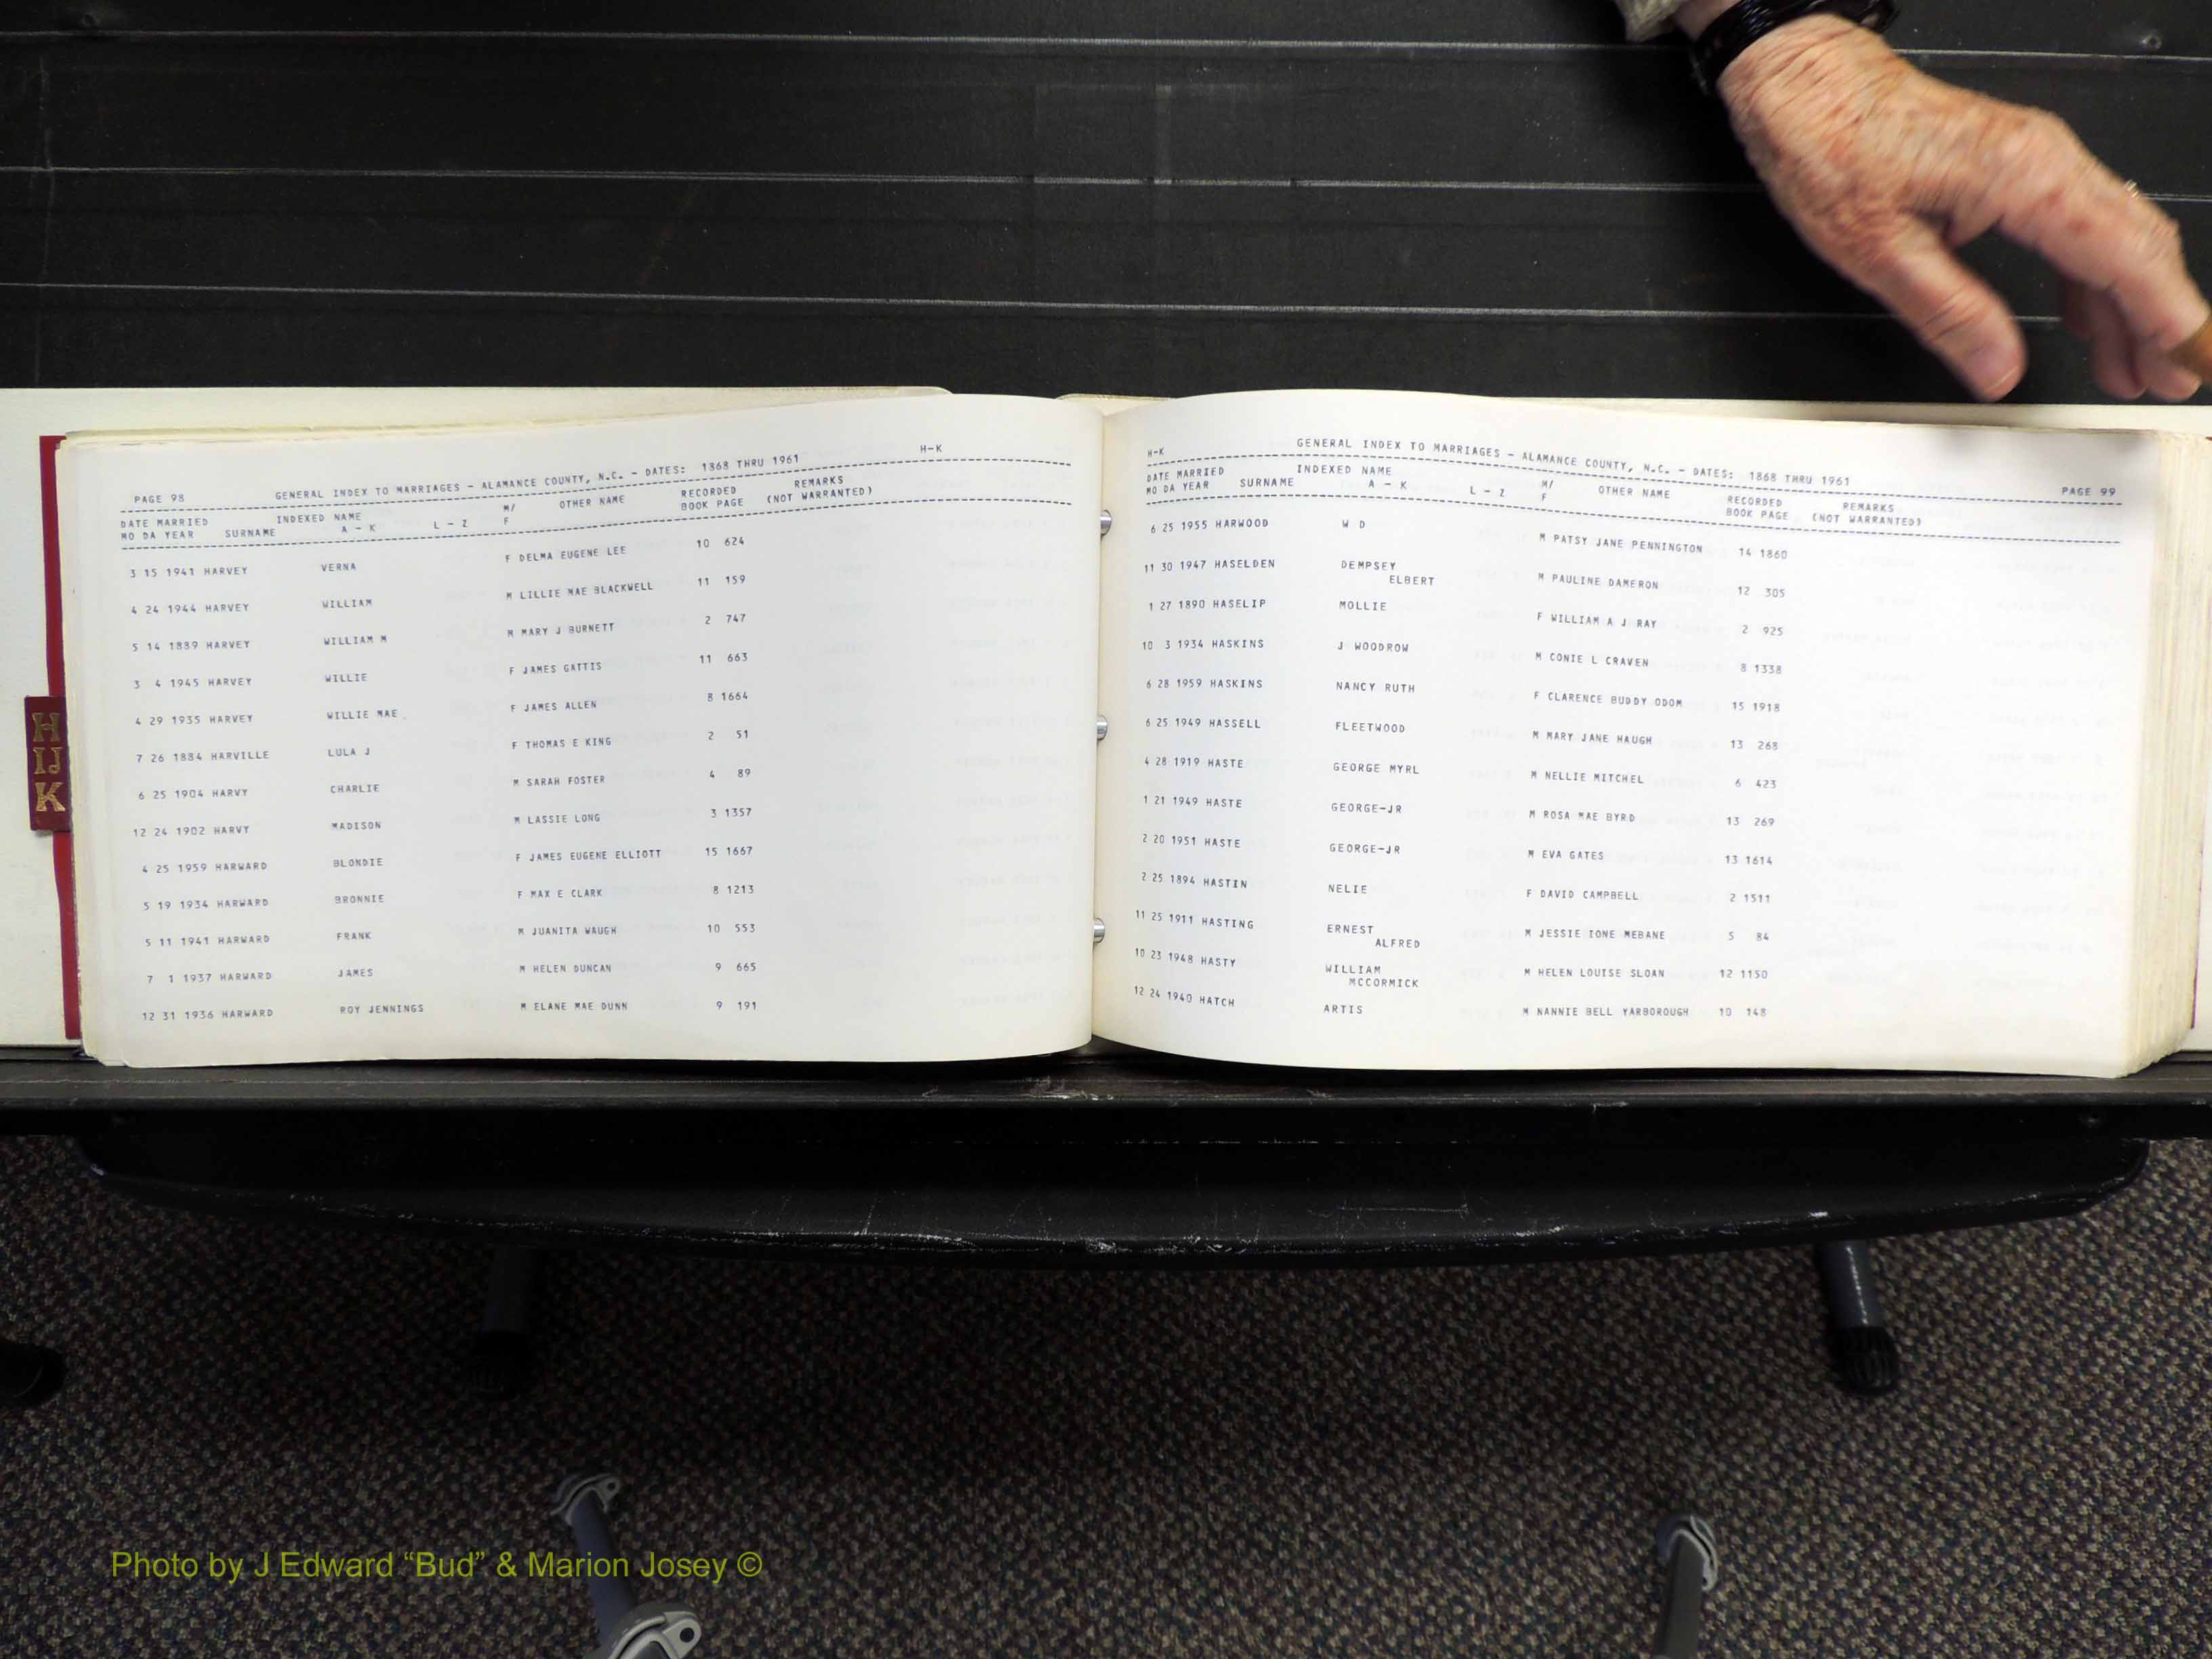 PAGE 98 GENERAL INDEX TO MARRIAGES - ALAMANCE COUNTY, N.C. - DATES: 1868 THRU 1961 H-K
DATE MARRIED INDEXED NAME M/ OTHER NAME RECORDED REMARKS
MO DA YEAR SURNAME A - K L - Z F BOOK PAGE (NOT WARRANTED)
3 15 1941 HARVEY VERNA F DELMA EUGENE LEE 10 624
4 24 1944 HARVEY WILLIAM M LILLIE MAE BLACKWELL 11 159
5 14 1889 HARVEY WILLIAM M M MARY J BURNETT 2 747
3 4 1945 HARVEY WILLIE F JAMES GATTIS 11 663
4 29 1935 HARVEY WILLIE MAE F JAMES ALLEN 8 1664
7 26 1884 HARVILLE LULA J F THOMAS E KING 2 51
6 25 1904 HARVY CHARLIE M SARAH FOSTER 4 89
12 24 1902 HARVY MADISON M LASSIE LONG 3 1357
4 25 1959 HARWARD BLONDIE F JAMES EUGENE ELLIOTT 15 1667
5 19 1934 HARWARD BRONNIE F MAX E CLARK 8 1213
5 11 1941 HARWARD FRANK M JUANITA WAUGH 10 553
7 1 1937 HARWARD JAMES M HELEN DUNCAN 9 665
12 31 1936 HARWARD ROY JENNINGS M ELANE MAE DUNN 9 191
H
IJ
K
H-K GENERAL INDEX TO MARRIAGES - ALAMANCE COUNTY, N.C. - DATES: 1868 THRU 1961 PAGE 99
DATE MARRIED INDEXED NAME M/ OTHER NAME RECORDED REMARKS
MO DA YEAR SURNAME A - K L - Z F BOOK PAGE (NOT WARRANTED)
6 25 1955 HARWOOD W D M PATSY JANE PENNINGTON 14 1860
11 30 1947 HASELDEN DEMPSEY M PAULINE DAMERON 12 305
ELBERT
1 27 1890 HASELIP MOLLIE F WILLIAM A J RAY 2 925
10 3 1934 HASKINS J WOODROW M CONIE L CRAVEN 8 1338
6 28 1959 HASKINS NANCY RUTH F CLARENCE BUDDY ODOM 15 1918
6 25 1949 HASSELL FLEETWOOD M MARY JANE HAUGH 13 268
4 28 1919 HASTE GEORGE MYRL M NELLIE MITCHEL 6 423
1 21 1949 HASTE GEORGE-JR M ROSA MAE BYRD 13 269
2 20 1951 HASTE GEORGE-JR M EVA GATES 13 1614
2 25 1894 HASTIN NELIE F DAVID CAMPBELL 2 1511
11 25 1911 HASTING ERNEST M JESSIE IONE MEBANE 5 84
ALFRED
10 23 1948 HASTY WILLIAM M HELEN LOUISE SLOAN 12 1150
MCCORMICK
12 24 1940 HATCH ARTIS M NANNIE BELL YARBOROUGH 10 148
Photo by J Edward “Bud” & Marion Josey ©